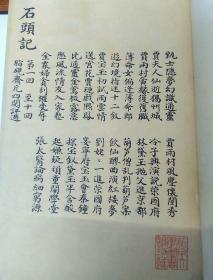 石頭記
第一回 至十回
脂硯齋凡四閱評過
甄士隱夢幻識通靈 賈雨村風塵懷閨秀
賈夫人仙逝揚州城 冷子興演說榮國府
賈雨村夤緣復舊職 林黛玉拋父進京都
薄命女偏逢薄命郎 葫蘆僧亂判葫蘆案
遊幻境指迷十二釵 飲仙醪曲演紅樓夢
賈寶玉初試雲雨情 劉姥〻一進榮國府
送宮花賈璉戲熙鳳 宴寧府寶玉會秦鐘
比通靈金鶯微露意 探寶釵黛玉半含酸
戀風流情友入家塾 起嫌疑頑童鬧學堂
金寡婦貪利權受辱 張太醫論病細窮源